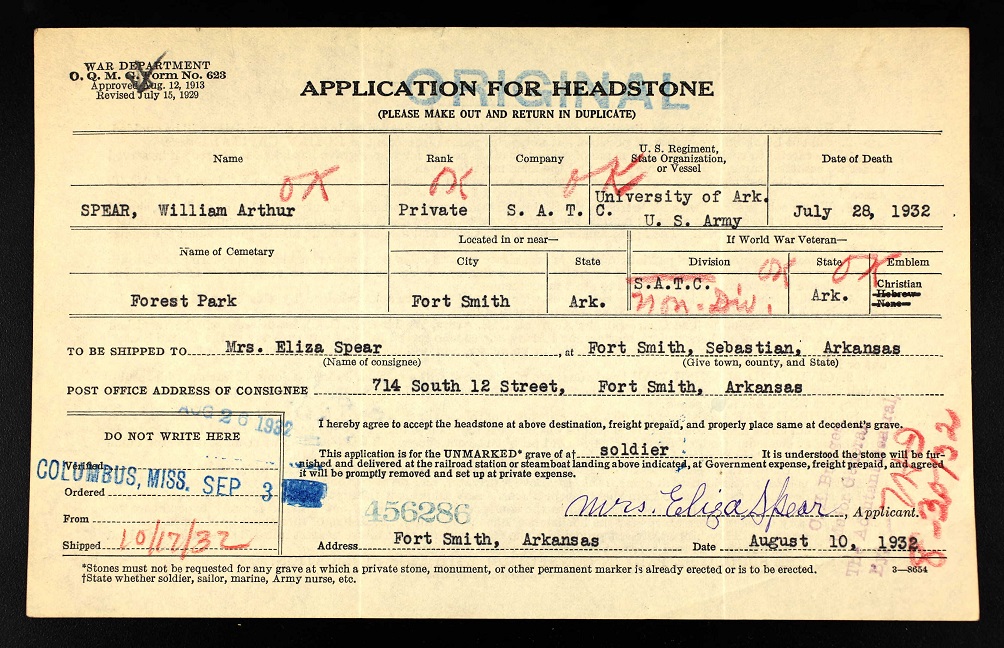 WAR DEPARTMENT
O. Q. M. G. Form No. 623
Approved Aug. 12, 1913
Revised July 15, 1929
ORIGINAL
APPLICATION FOR HEADSTONE
(PLEASE MAKE OUT AND RETURN IN DUPLICATE)
Name Rank Company U. S. Regiment, State Organization, or Vessel Date of Death
OK OK OK
SPEAR, William Arthur Private S. A. T. C. University of Ark. U. S. Army July 28, 1932
Name of Cemetary Located in or near— If World War Veteran—
City State Division OK State OK Emblem
Forest Park Fort Smith Ark. S.A.T.C. Non-Div. Ark. Christian Hebrew None
TO BE SHIPPED TO Mrs. Eliza Spear, at Fort Smith, Sebastian, Arkansas
(Name of consignee) (Give town, county, and State)
POST OFFICE ADDRESS OF CONSIGNEE 714 South 12 Street, Fort Smith, Arkansas
AUG 26 1932
DO NOT WRITE HERE
I hereby agree to accept the headstone at above destination, freight prepaid, and properly place same at decedent's grave.
This application is for the UNMARKED* grave of a† soldier. It is understood the stone will be fur-
nished and delivered at the railroad station or steamboat landing above indicated, at Government expense, freight prepaid, and agreed
it will be promptly removed and set up at private expense.
Verified
COLUMBUS, MISS. SEP 3
Ordered
456286
Mrs. Eliza Spear, Applicant.
From
Shipped 10/17/32
Address Fort Smith, Arkansas Date August 10, 1932
8-30/32
*Stones must not be requested for any grave at which a private stone, monument, or other permanent marker is already erected or is to be erected. 3—8654
†State whether soldier, sailor, marine, Army nurse, etc.